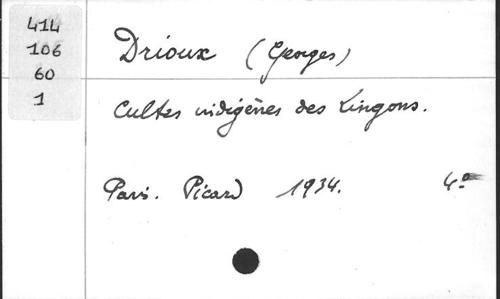 414
106
60
1
Drioux (Georges)
Cultes indigènes des Lingons.
Paris. Picard 1934. 4º